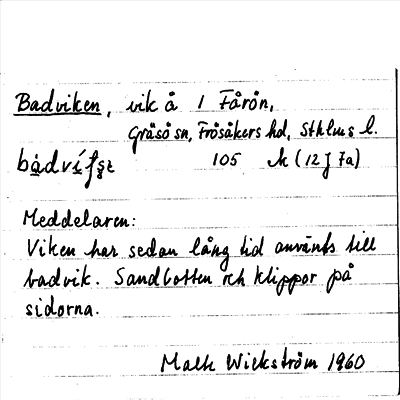 Badviken, vik å 1 Fårön,
Gräsö sn, Frösåkers hd, Sthlms l.
105 k (12 J 7a)
Meddelaren:
Viken har sedan lång tid använts till
badvik. Sandbotten och klippor på
sidorna.
Malk Wickström 1960